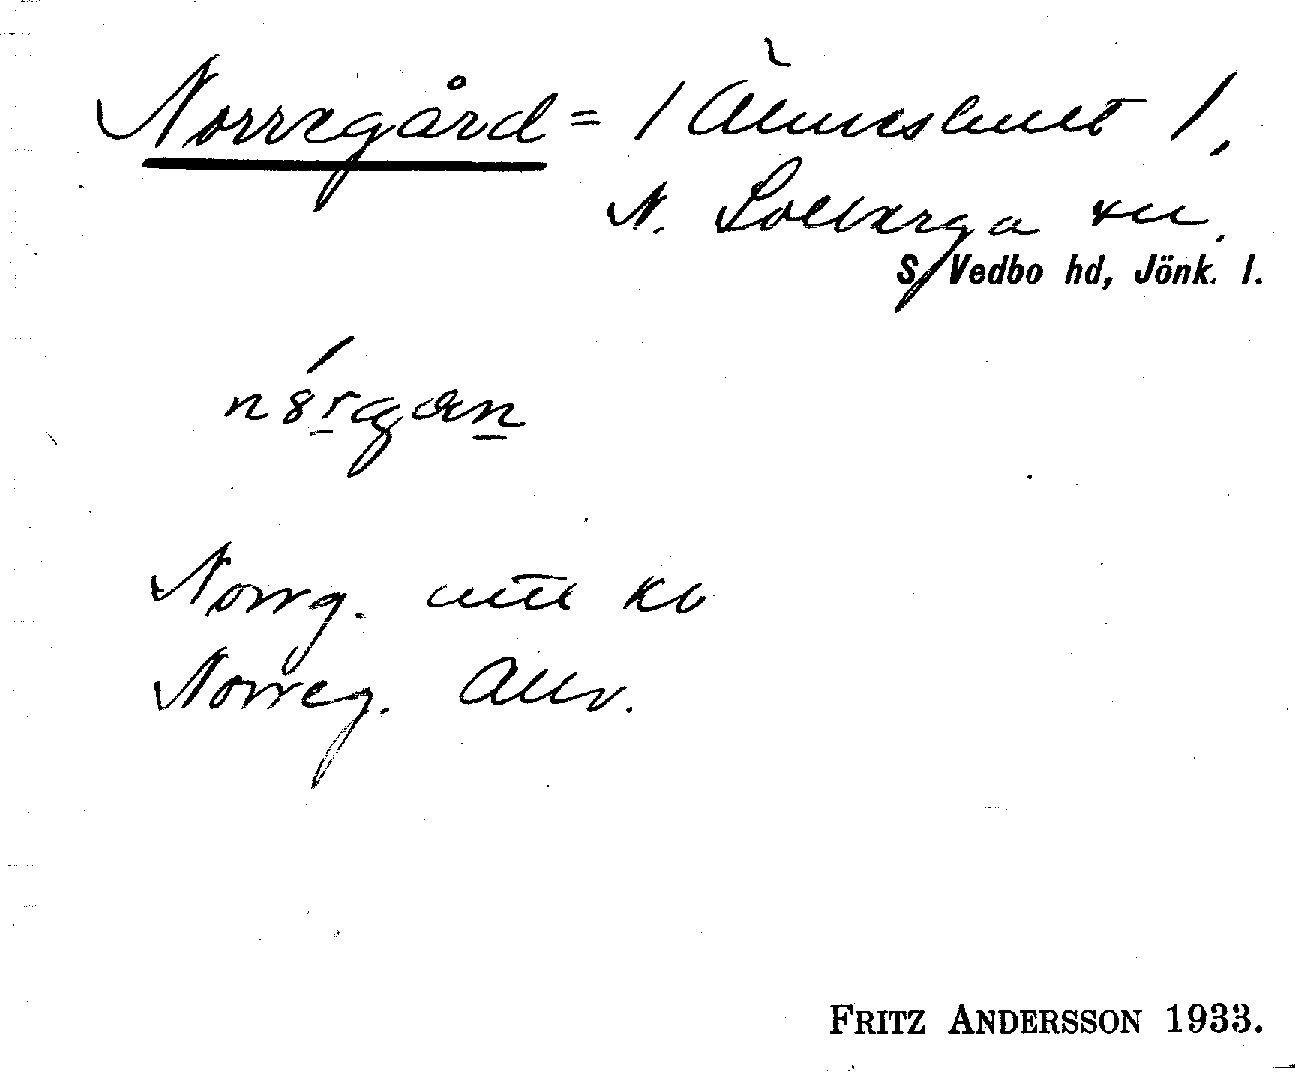 Norregård = / Älmeshult /,
N. Solberga sn.
S. Vedbo hd, Jönk. l.
Norrg. uttl kb
Norreg. Allv.
FRITZ ANDERSSON 1933.